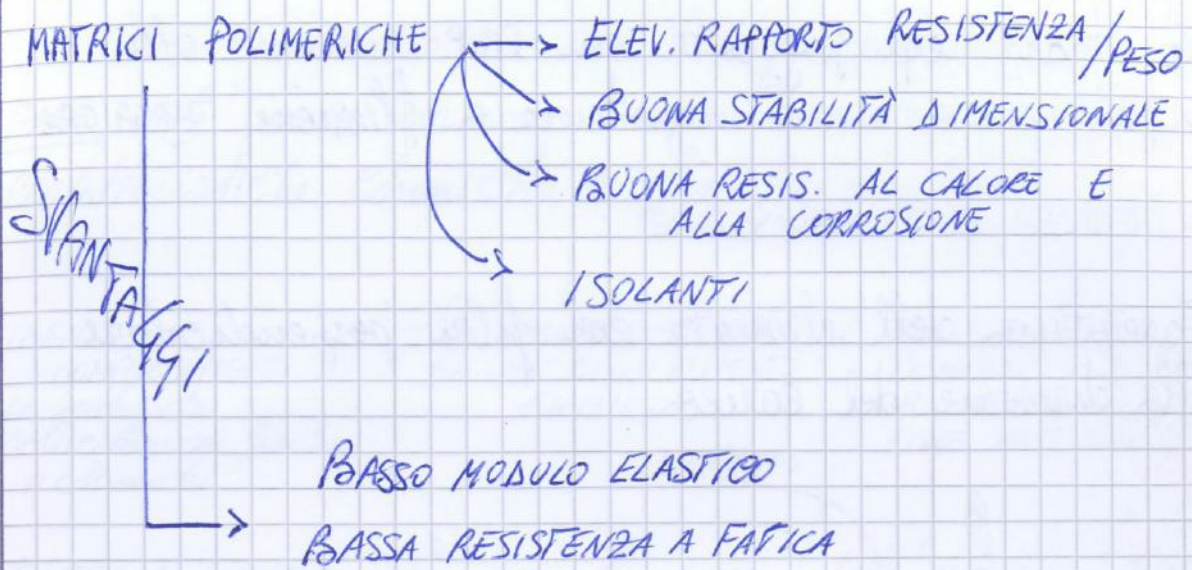 MATRICI POLIMERICHE → ELEV. RAPPORTO RESISTENZA/PESO
→ BUONA STABILITÀ DIMENSIONALE
→ BUONA RESIS. AL CALORE E
ALLA CORROSIONE
→ ISOLANTI
SVANTAGGI
→ BASSO MODULO ELASTICO
BASSA RESISTENZA A FATICA